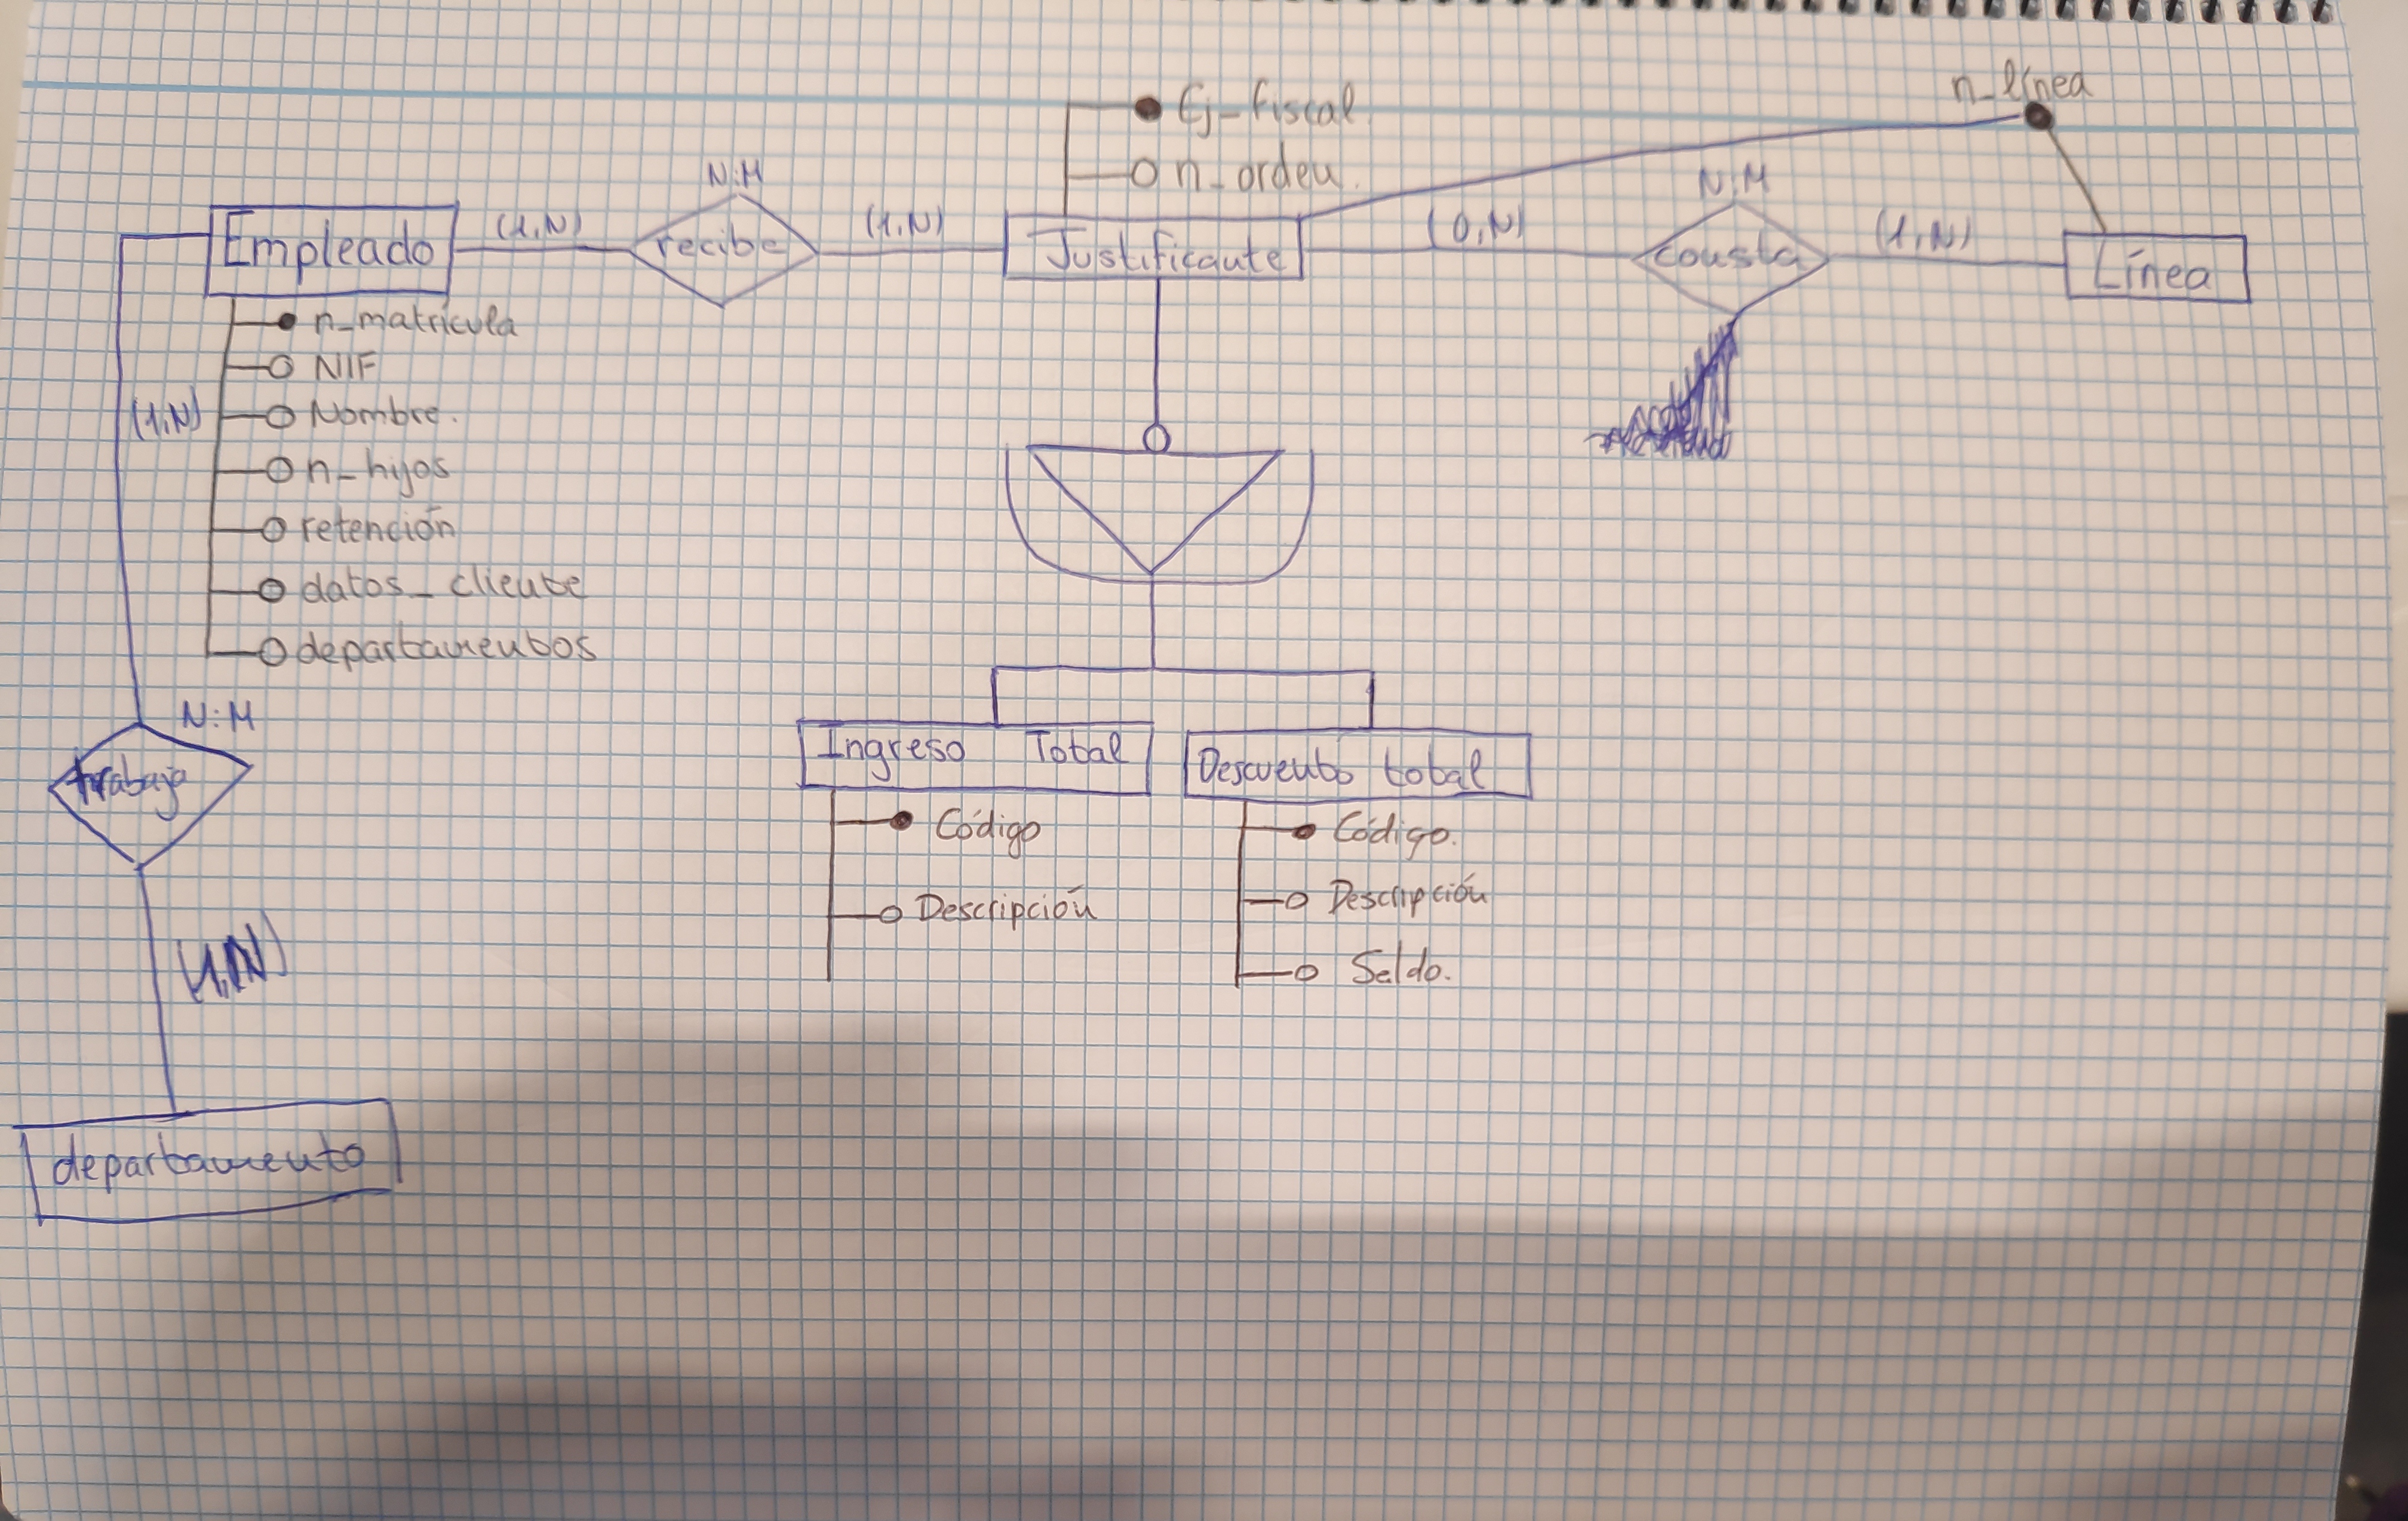 n_línea
Ej_fiscal.
n_orden.
N:M
N:M
Empleado
(1,N)
recibe
(1,N)
Justificante
(0,N)
consta
(1,N)
Línea
n_matrícula
NIF
(1,N)
Nombre.
n_hijos
retención
datos_cliente
departamentos
N:M
trabaja
Ingreso Total
Descuento total
Código
Código.
Descripción
Descripción
Saldo.
(1,N)
departamento